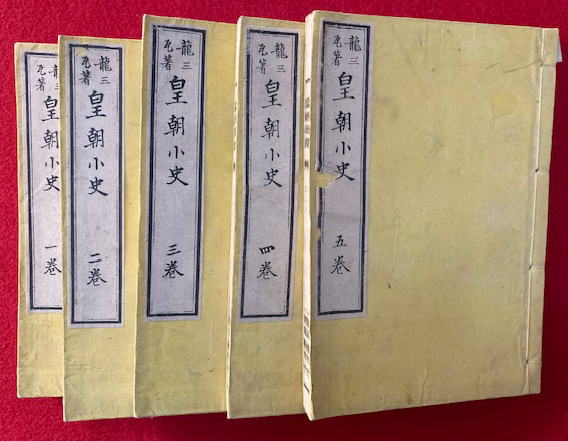 龍三
瓦著
皇朝小史
一巻
龍三
瓦著
皇朝小史
二巻
龍三
瓦著
皇朝小史
三巻
龍三
瓦著
皇朝小史
四巻
龍三
瓦著
皇朝小史
五巻